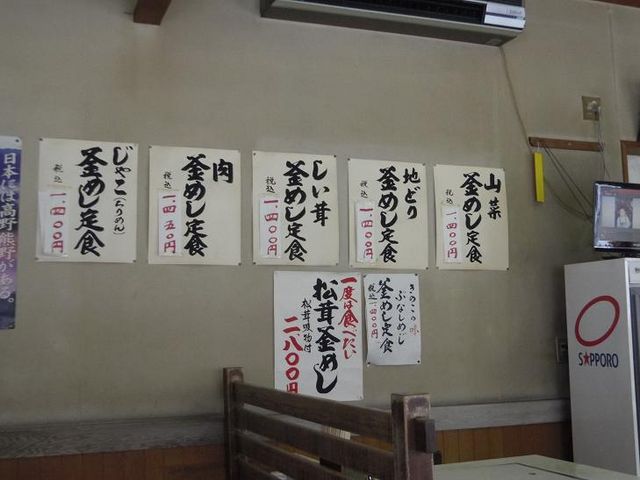 日本には高野・熊野がある。
じゃこ(ちりめん)
釜めし定食
税込
一、四〇〇円
肉
釜めし定食
税込
一、四五〇円
しい茸
釜めし定食
税込
一、四〇〇円
地どり
釜めし定食
税込
一、四〇〇円
山菜
釜めし定食
税込
一、四〇〇円
一度は食べたい
松茸釜めし
松茸吸物付
二、八〇〇円
きのこの味
ぶなしめじ
釜めし定食
税込一、四〇〇円
SAPPORO